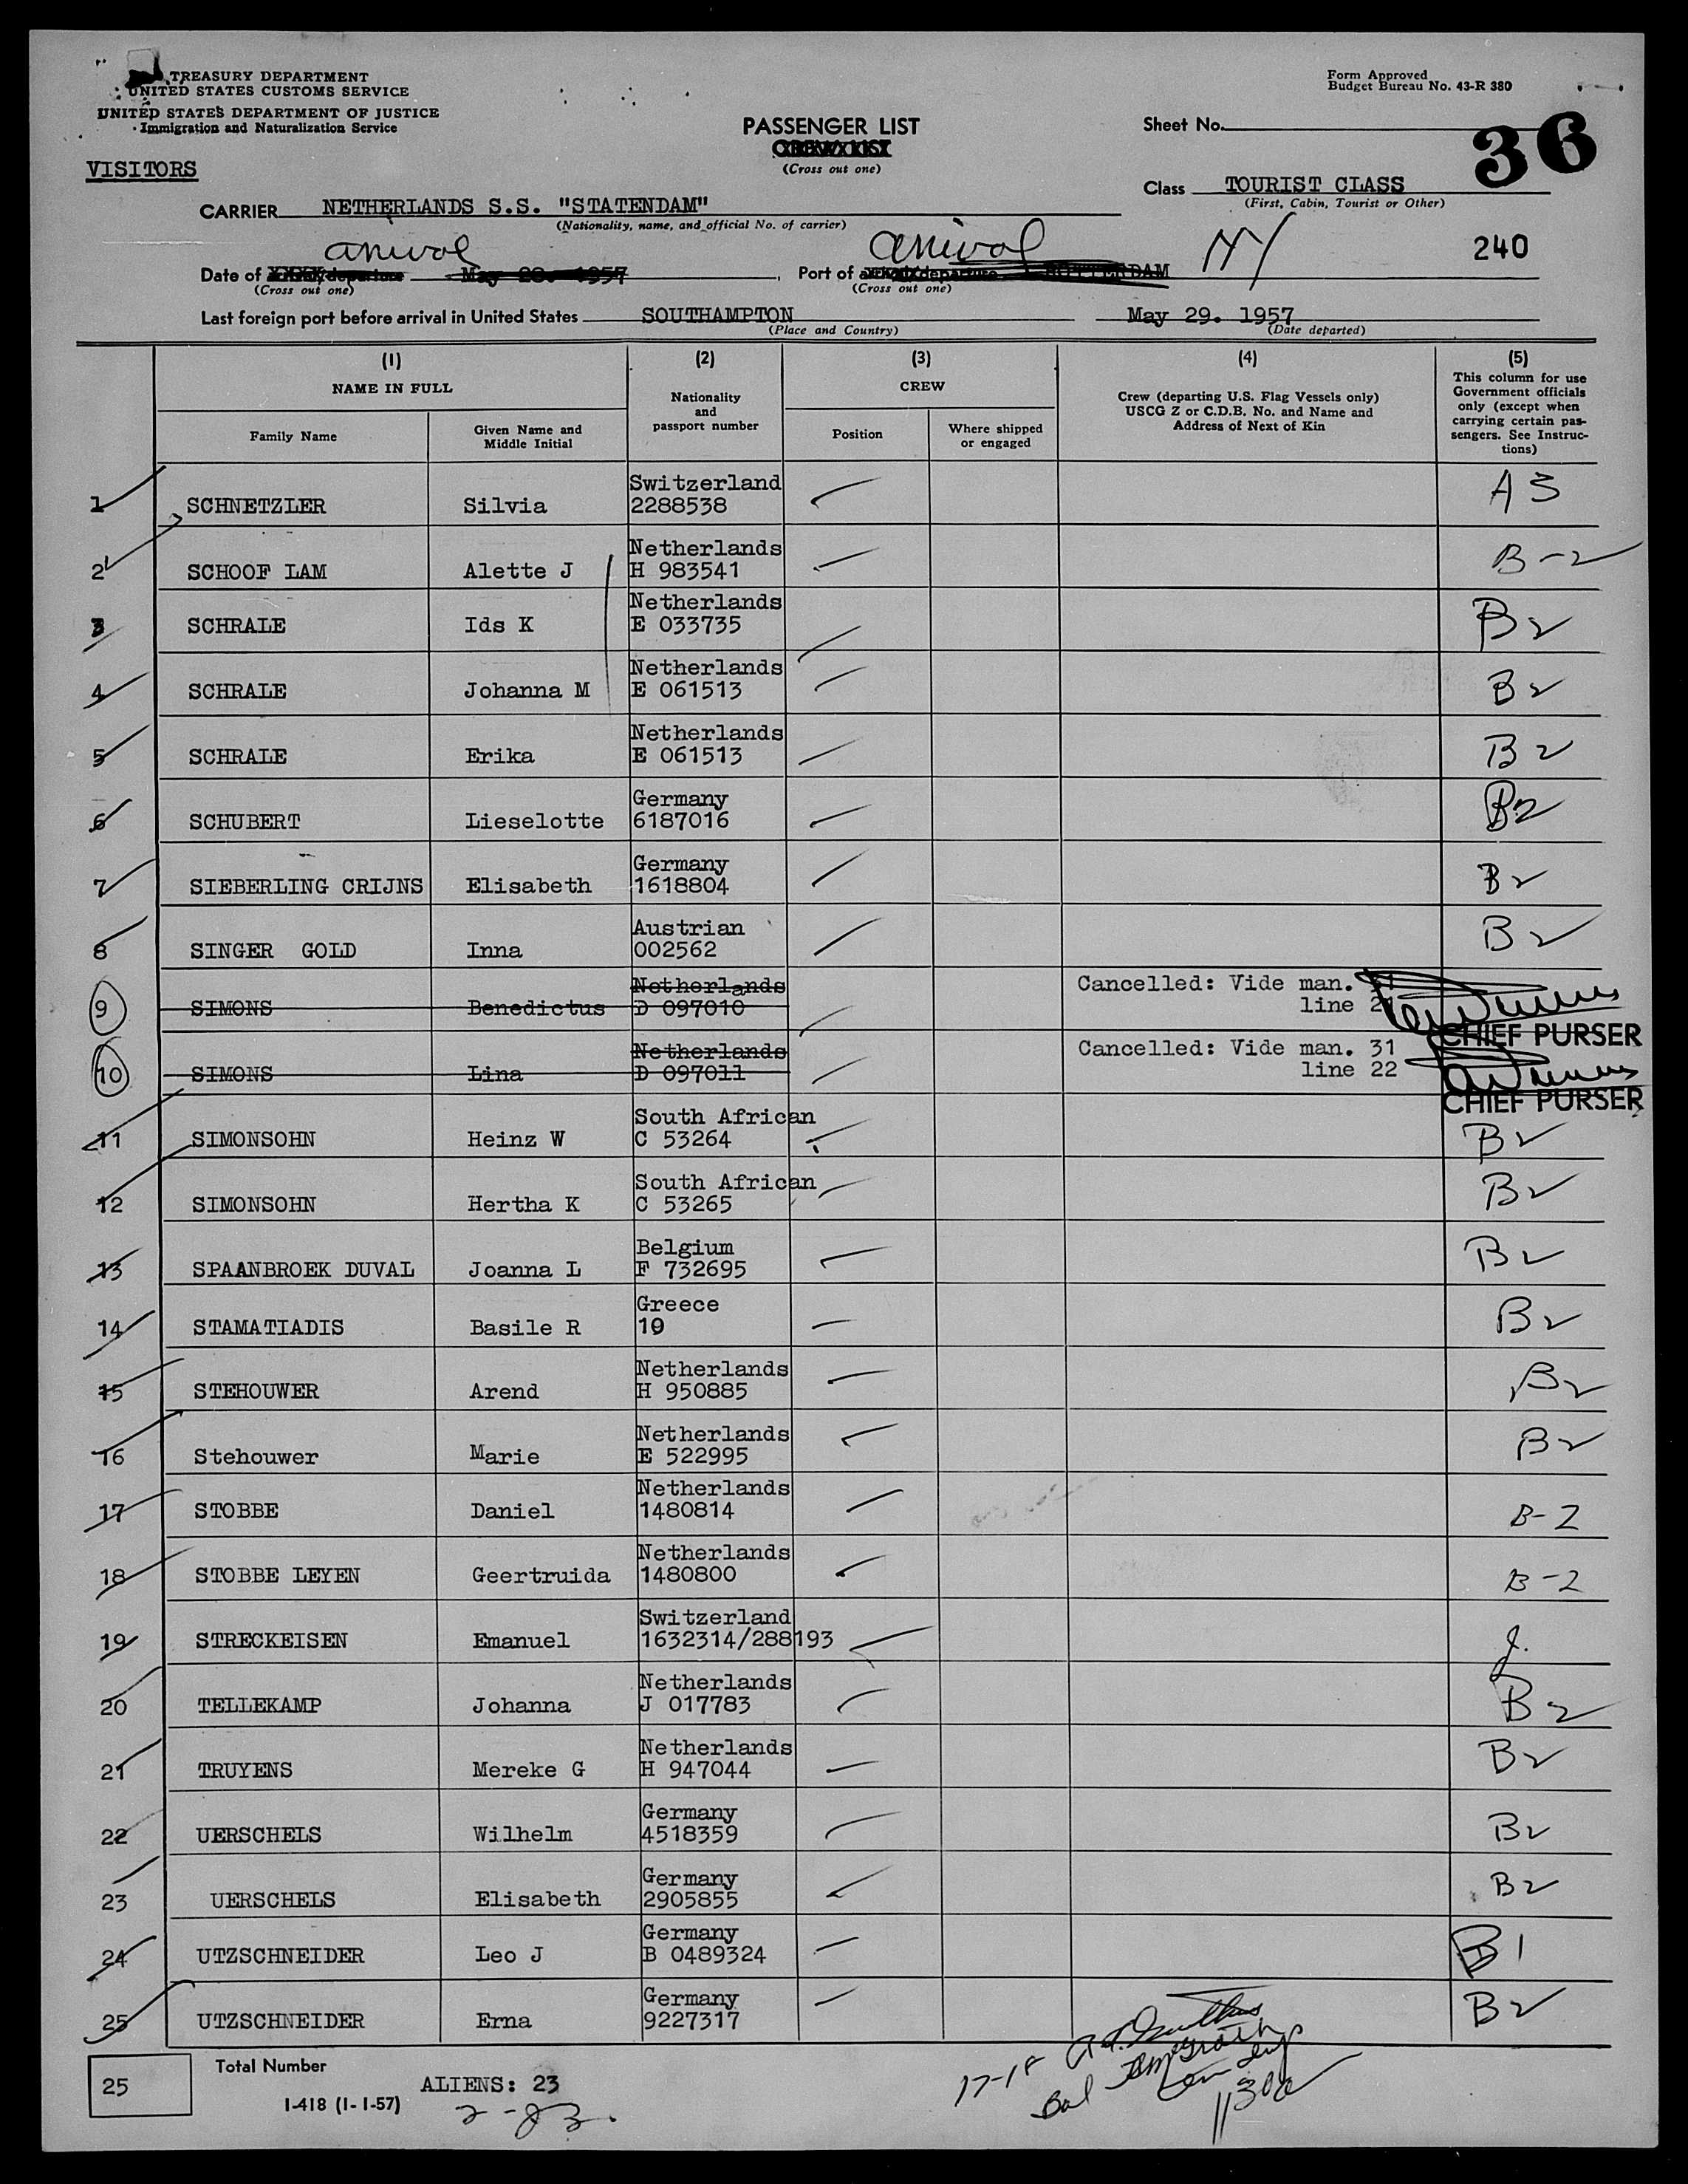 TREASURY DEPARTMENT
UNITED STATES CUSTOMS SERVICE
UNITED STATES DEPARTMENT OF JUSTICE
Immigration and Naturalization Service
Form Approved
Budget Bureau No. 43-R 380
PASSENGER LIST
CREW LIST
(Cross out one)
Sheet No.
36
VISITORS
Class TOURIST CLASS
(First, Cabin, Tourist or Other)
CARRIER NETHERLANDS S.S. "STATENDAM"
(Nationality, name, and official No. of carrier)
arrival arrival NY 240
Date of departure May 28. 1957 Port of departure ROTTERDAM
(Cross out one) (Cross out one)
Last foreign port before arrival in United States SOUTHAMPTON May 29. 1957
(Place and Country) (Date departed)
(1) (2) (3) (4) (5)
NAME IN FULL
Family Name
Given Name and Middle Initial
Nationality and passport number
CREW
Position
Where shipped or engaged
Crew (departing U.S. Flag Vessels only)
USCG Z or C.D.B. No. and Name and
Address of Next of Kin
This column for use
Government officials
only (except when
carrying certain pas-
sengers. See Instruc-
tions)
1 SCHNETZLER Silvia Switzerland 2288538 A3
2 SCHOOF LAM Alette J Netherlands H 983541 B-2
3 SCHRALE Ids K Netherlands E 033735 B2
4 SCHRALE Johanna M Netherlands E 061513 B2
5 SCHRALE Erika Netherlands E 061513 B2
6 SCHUBERT Lieselotte Germany 6187016 B2
7 SIEBERLING CRIJNS Elisabeth Germany 1618804 B2
8 SINGER GOLD Inna Austrian 002562 B2
9 SIMONS Benedictus Netherlands D 097010 Cancelled: Vide man.
line
CHIEF PURSER
10 SIMONS Lina Netherlands D 097011 Cancelled: Vide man. 31
line 22
CHIEF PURSER
11 SIMONSOHN Heinz W South African C 53264 B2
12 SIMONSOHN Hertha K South African C 53265 B2
13 SPAANBROEK DUVAL Joanna L Belgium F 732695 B2
14 STAMATIADIS Basile R Greece 19 B2
15 STEHOUWER Arend Netherlands H 950885 B2
16 Stehouwer Marie Netherlands E 522995 B2
17 STOBBE Daniel Netherlands 1480814 B-2
18 STOBBE LEYEN Geertruida Netherlands 1480800 B-2
19 STRECKEISEN Emanuel Switzerland 1632314/288193 J.
20 TELLEKAMP Johanna Netherlands J 017783 B2
21 TRUYENS Mereke G Netherlands H 947044 B2
22 UERSCHELS Wilhelm Germany 4518359 B2
23 UERSCHELS Elisabeth Germany 2905855 B2
24 UTZSCHNEIDER Leo J Germany B 0489324 B1
25 UTZSCHNEIDER Erna Germany 9227317 B2
25 Total Number
ALIENS: 23
I-418 (1-1-57)
17-18
Bal
1130a